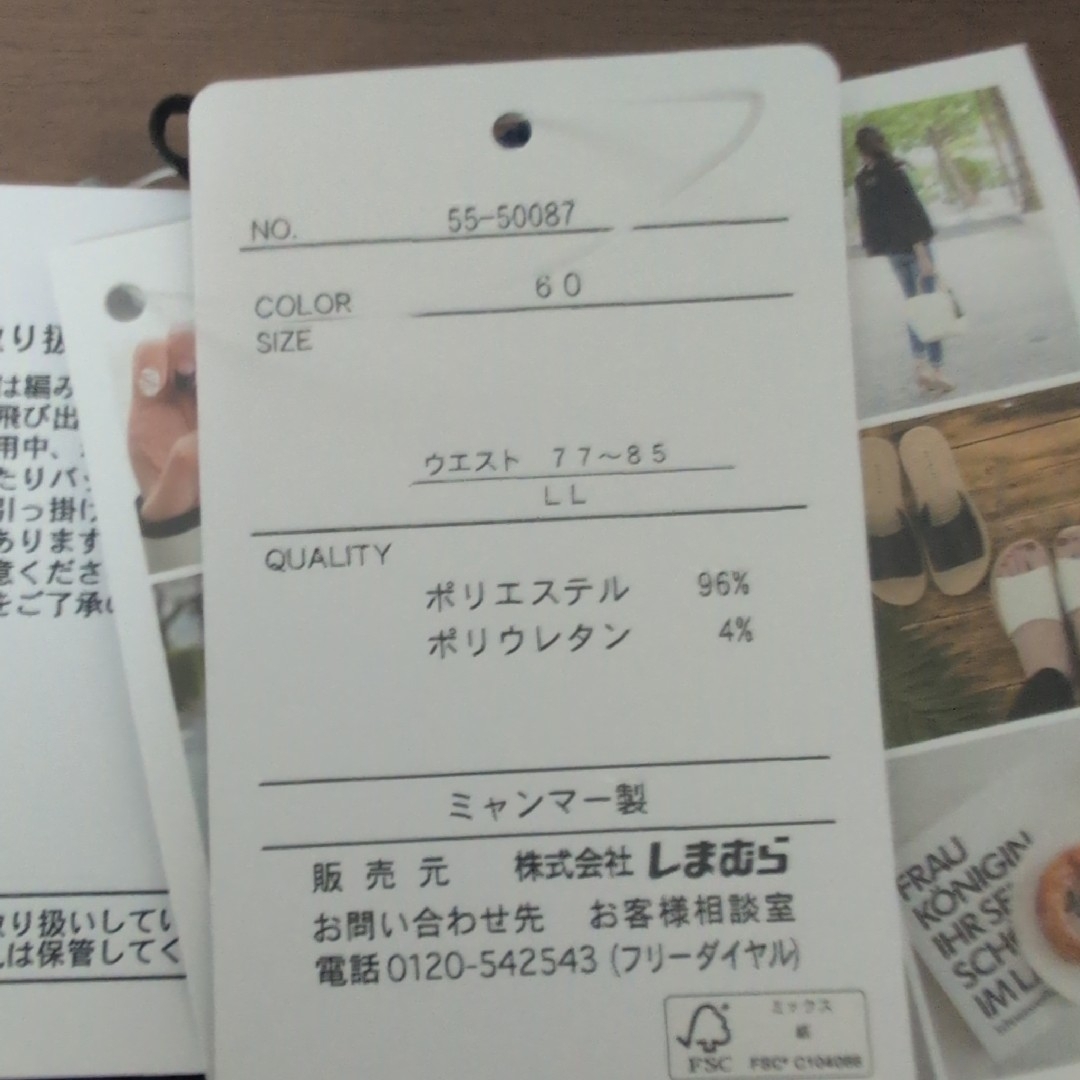 NO. 55-50087
COLOR 60
SIZE
ウエスト 77～85
LL
QUALITY
ポリエステル 96%
ポリウレタン 4%
ミャンマー製
販売元 株式会社 しまむら
お問い合わせ先 お客様相談室
電話 0120-542543 (フリーダイヤル)
ミックス
紙
FSC FSC® C104088
り扱
は編み
飛び出
用中、
たりバッ
引っ掛け
あります
意くださ
をご了承
取り扱いしてい
は保管してく
FRAU
KÖNIGIN
IHR SE
SCH
IM L